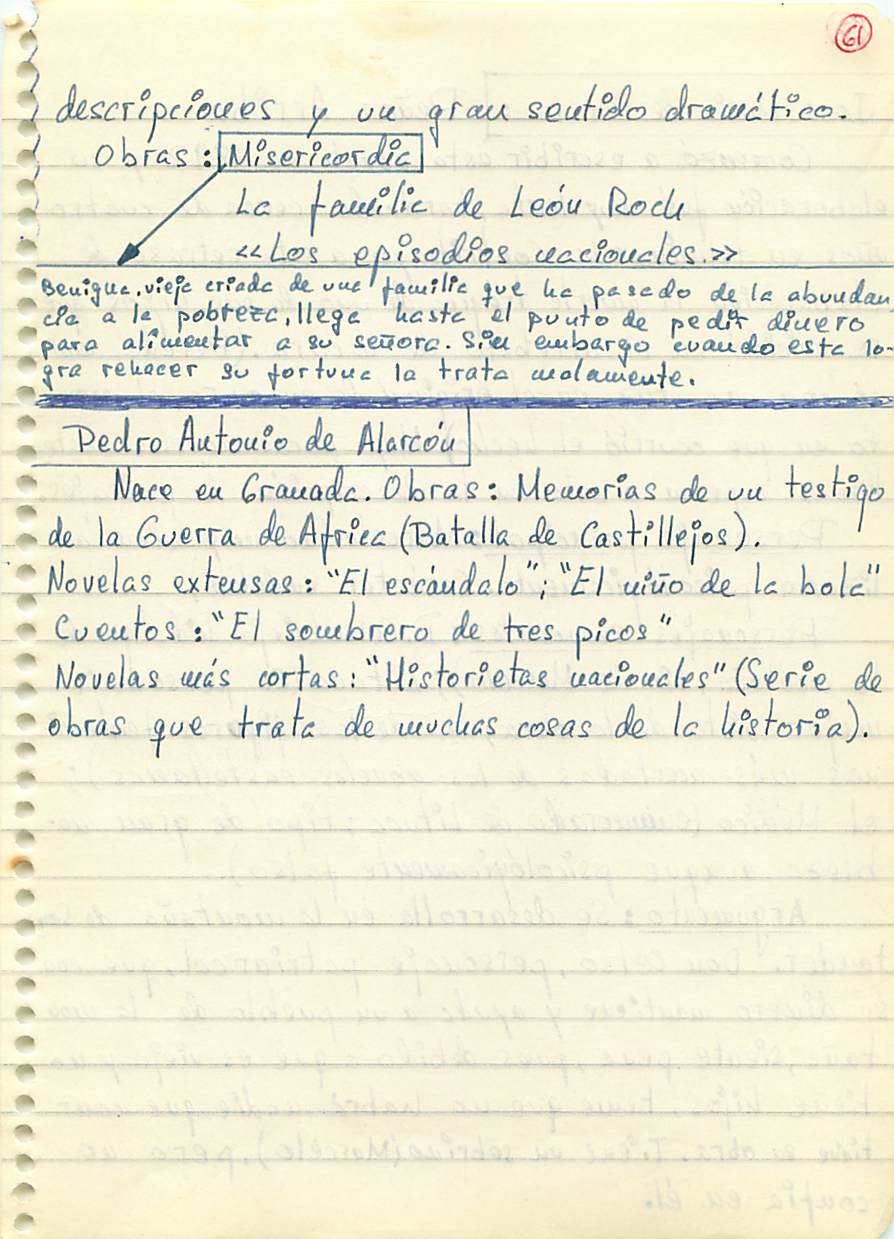 61
descripciones y un gran sentido dramático.
Obras: Misericordia
La familia de León Roch
<<Los episodios nacionales.>>
Benigna, vieja criada de una familia que ha pasado de la abundan
cia a la pobreza, llega hasta el punto de pedir dinero
para alimentar a su señora. Sin embargo cuando esta lo-
gra rehacer su fortuna la trata malamente.
Pedro Antonio de Alarcón
Nace en Granada. Obras: Memorias de un testigo
de la Guerra de Africa (Batalla de Castillejos).
Novelas extensas: "El escándalo"; "El niño de la bola"
Cuentos: "El sombrero de tres picos"
Novelas más cortas: "Historietas nacionales" (Serie de
obras que trata de muchas cosas de la historia).